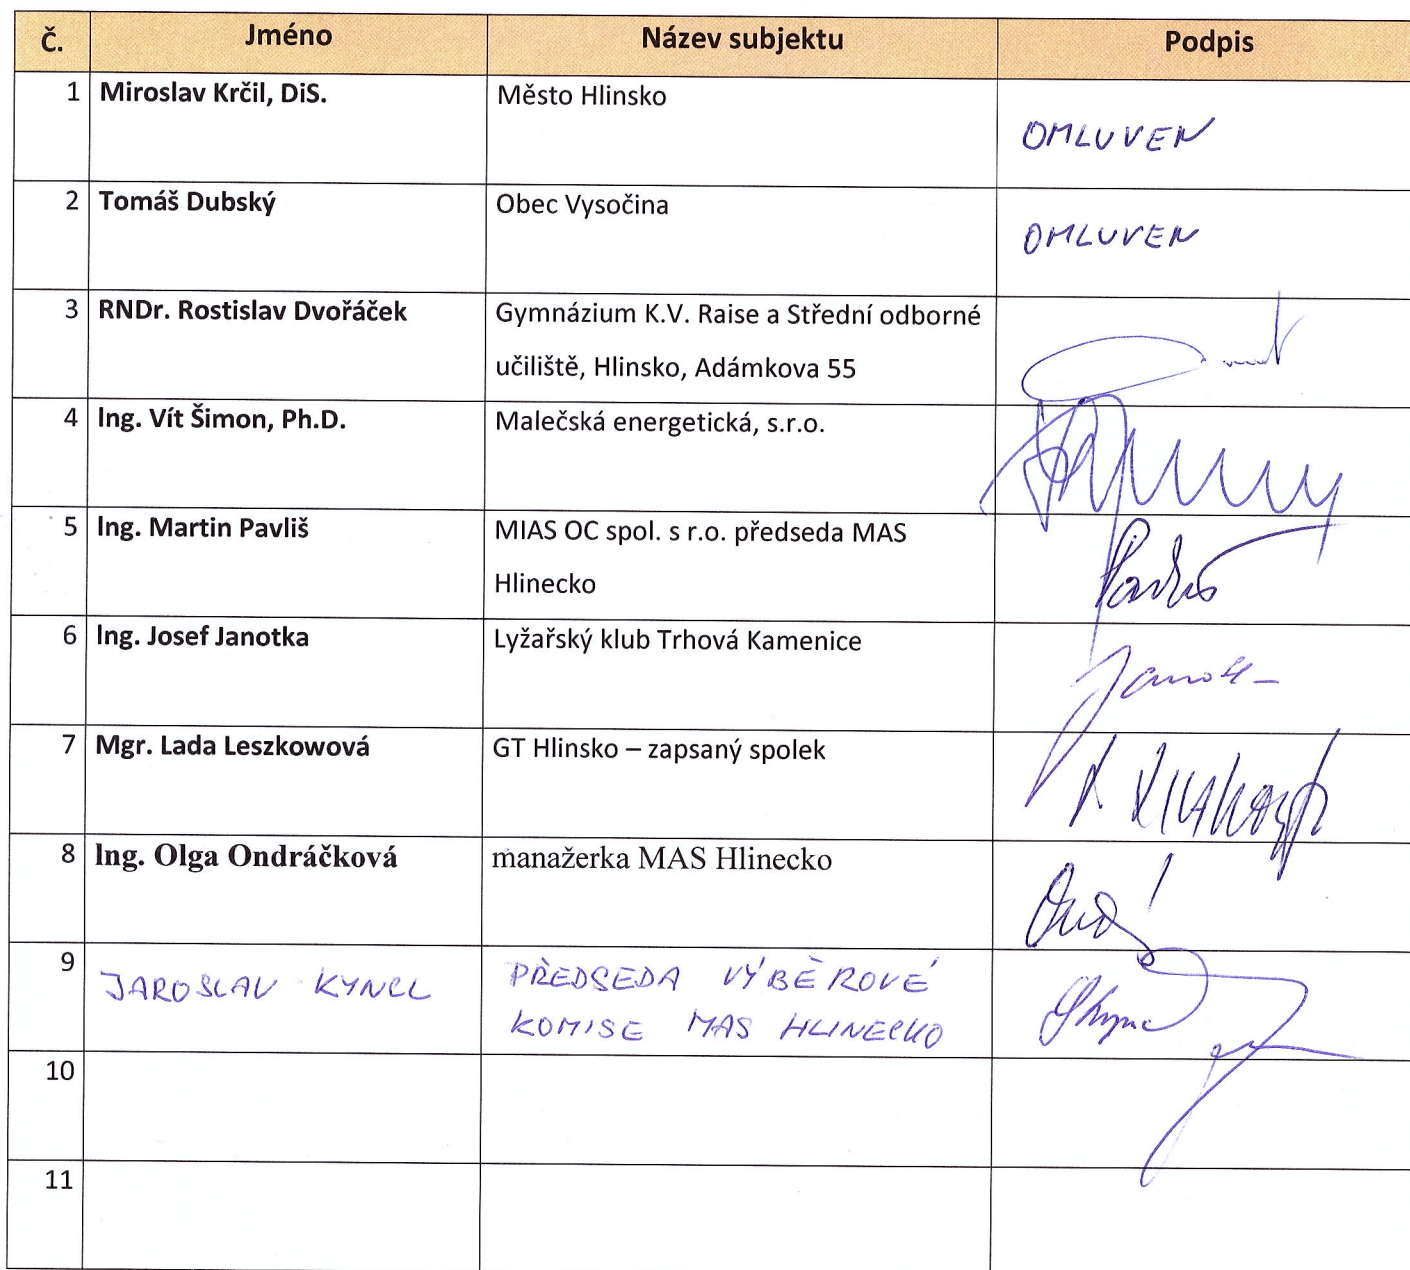 Č. Jméno Název subjektu Podpis
1 Miroslav Krčil, DiS. Město Hlinsko OMLUVEN
2 Tomáš Dubský Obec Vysočina OMLUVEN
3 RNDr. Rostislav Dvořáček Gymnázium K.V. Raise a Střední odborné
učiliště, Hlinsko, Adámkova 55
4 Ing. Vít Šimon, Ph.D. Malečská energetická, s.r.o.
5 Ing. Martin Pavliš MIAS OC spol. s r.o. předseda MAS
Hlinecko
6 Ing. Josef Janotka Lyžařský klub Trhová Kamenice
7 Mgr. Lada Leszkowová GT Hlinsko – zapsaný spolek
8 Ing. Olga Ondráčková manažerka MAS Hlinecko
9 JAROSLAV KYNCL PŘEDSEDA VÝBĚROVÉ
KOMISE MAS HLINECKO
10
11